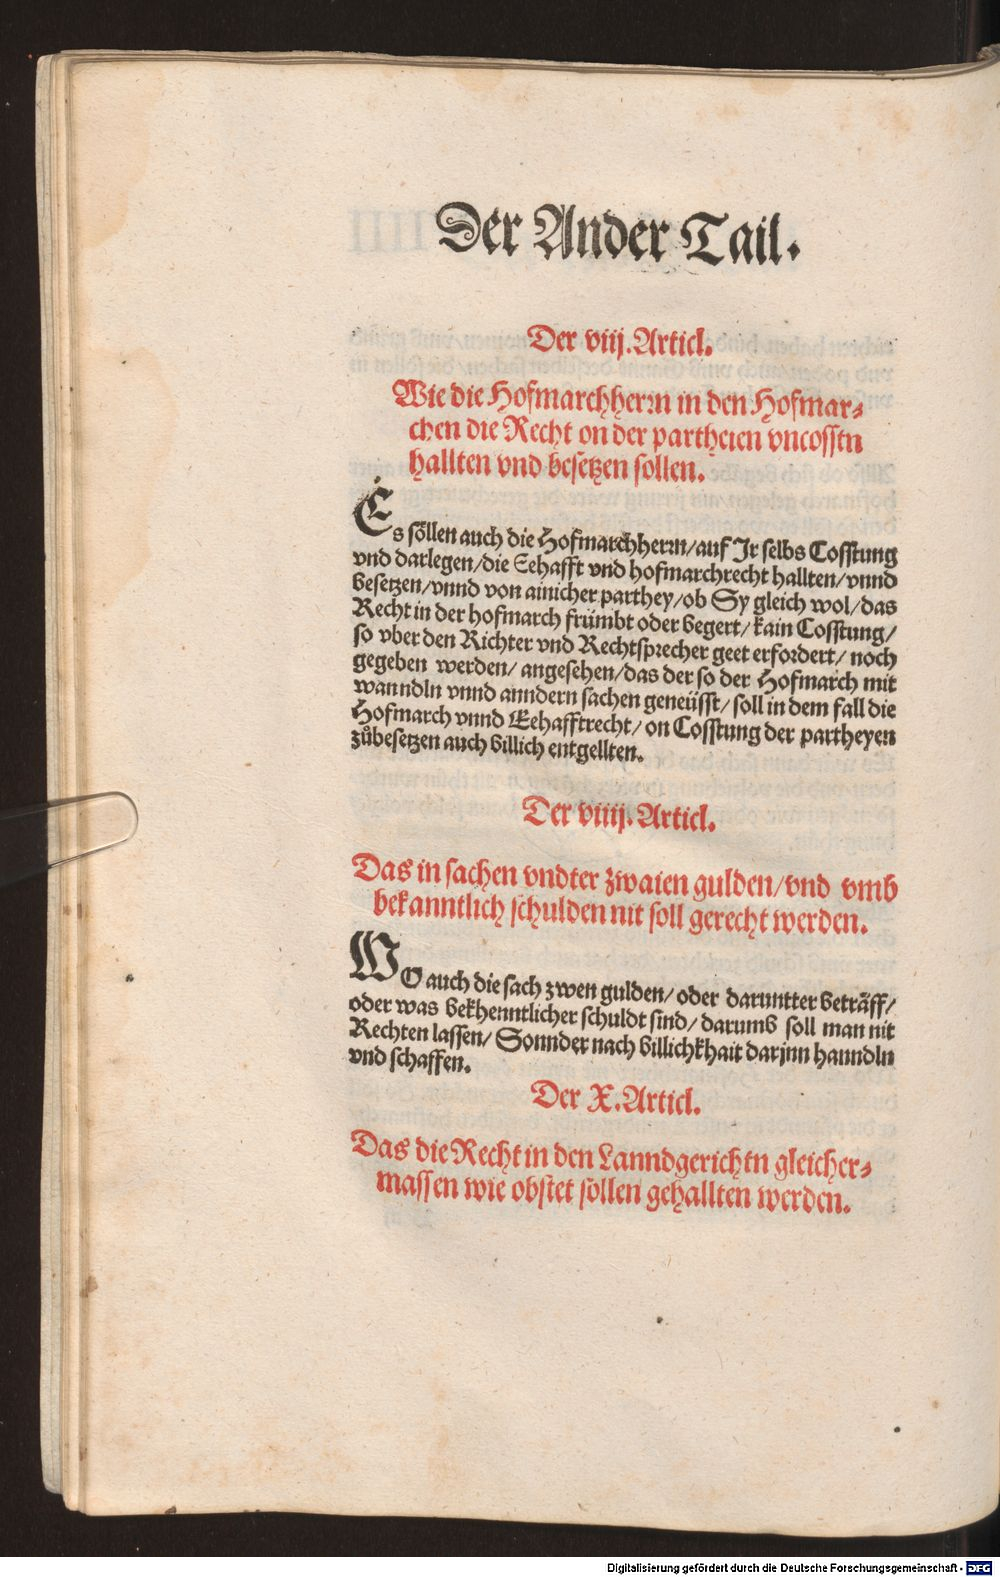 Der Ander Tail.
Der viij. Articl.
Wie die Hofmarchherrn in den Hofmar-
chen die Recht on der partheien vncosstn
hallten vnd besetzen sollen.
Es söllen auch die Hofmarchherrn/auf Jr selbs Cosstung
vnd darlegen/die Eehafft vnd hofmarchrecht hallten/vnnd
besetzen/vnnd von ainicher parthey/ob Sy gleich wol/das
Recht in der hofmarch frümbt oder begert/kain Cosstung/
so vber den Richter vnd Rechtsprecher geet erfordert/ noch
gegeben werden/ angesehen/das der so der Hofmarch mit
wanndln vnnd anndern sachen geneüsst/ soll in dem fall die
Hofmarch vnnd Eehafftrecht/ on Cosstung der partheyen
zůbesetzen auch billich entgellten.
Der viiij. Articl.
Das in sachen vndter zwaien gulden/vnd vmb
bekanntlich schulden nit soll gerecht werden.
WO auch die sach zwen gulden/ oder daruntter beträff/
oder was bekhenntlicher schuldt sind/ darumb soll man nit
Rechten lassen/ Sonnder nach billichkhait darjnn hanndln
vnd schaffen.
Der X. Articl.
Das die Recht in den Lanndgerichtn gleicher-
massen wie obstet söllen gehallten werden.
Digitalisierung gefördert durch die Deutsche Forschungsgemeinschaft - DFG